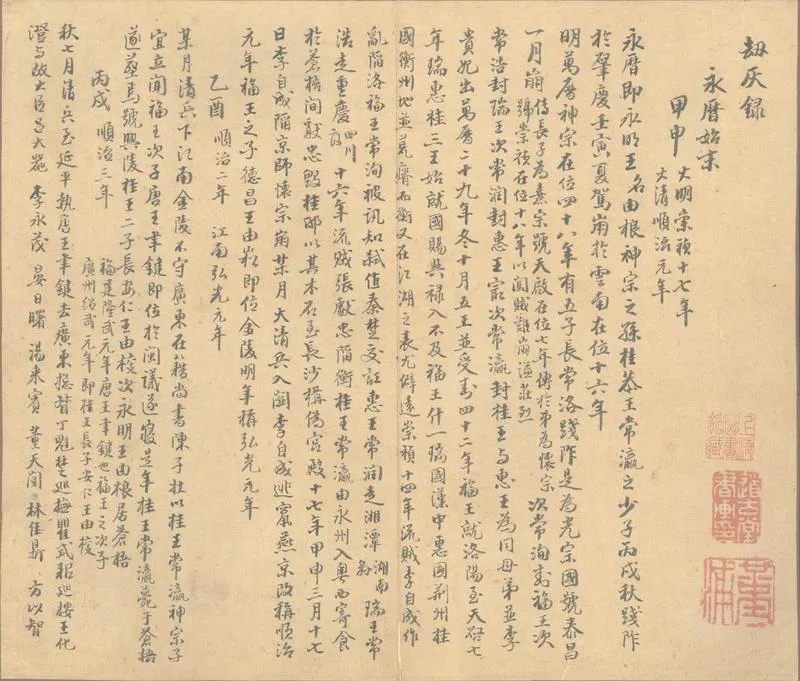 劫灰録
永曆始末
甲申 大明崇禎十七年
大清順治元年
永曆即永明王名由根神宗之孫桂恭王常瀛之少子丙戌秋踐阼
於肇慶壬寅夏駕崩於雲南在位十六年
明萬曆神宗在位四十八年有五子長常洛踐阼是為光宗國號泰昌
一月崩傳長子為熹宗號天啟在位七年傳於弟為懷宗
號崇禎在位十八年以闖賊難崩謚莊烈
次常洵封福王次
常浩封瑞王次常潤封惠王最次常瀛封桂王與惠王為同母弟並李
貴妃出萬曆二十九年冬十月五王並受封四十二年福王就洛陽至天啓七
年瑞惠桂三王始就國賜與祿入不及福王什一瑞國漢中惠國荆州桂
國衡州地並荒瘠而衡又在江湖之表尤僻遠崇禎十四年流賊李自成作
亂陷洛福王常洵被讯知弑值秦楚交訌惠王常潤走湘潭湖南
瑞王常
浩走重慶四川
府
十六年流賊張獻忠陷衡桂王常瀛由永州入粤西寄食
於蒼梧間獻忠毀桂邸以其木石至長沙構偽宮殿十七年甲申三月十七
日李自成陷京師懷宗崩某月大清兵入關李自成逃竄燕京改稱順治
元年福王之子德昌王由崧即位金陵明年稱弘光元年
乙酉 順治二年 江南弘光元年
某月清兵下江南金陵不守廣東在籍尚書陳子壯以桂王常瀛神宗子
宜立聞福王次子唐王聿鍵即位於閩議遂寢是年桂王常瀛薨于蒼梧
遂塟焉號興陵桂王二子長安仁王由㮋次永明王由根居蒼梧
丙戌 順治三年 福建隆武元年唐王聿鍵也福王之次子
廣州紹武元年即桂王長子安仁王由㮋
秋七月清兵至延平執唐王聿鍵去廣東揔督丁魁楚巡撫瞿式耜巡按王化
澄與故大臣呂大器 李永茂 晏日曙 湯來賓 董天閲 林佳鼎 方以智
道古堂
書畫印